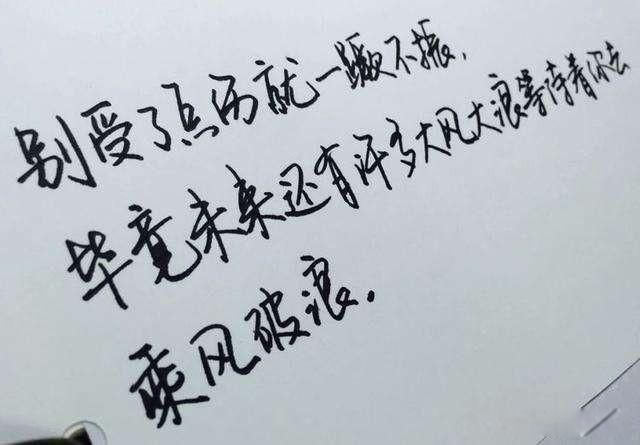 别受了点伤就一蹶不振,
毕竟未来还有许多大风大浪等待着你去
乘风破浪.